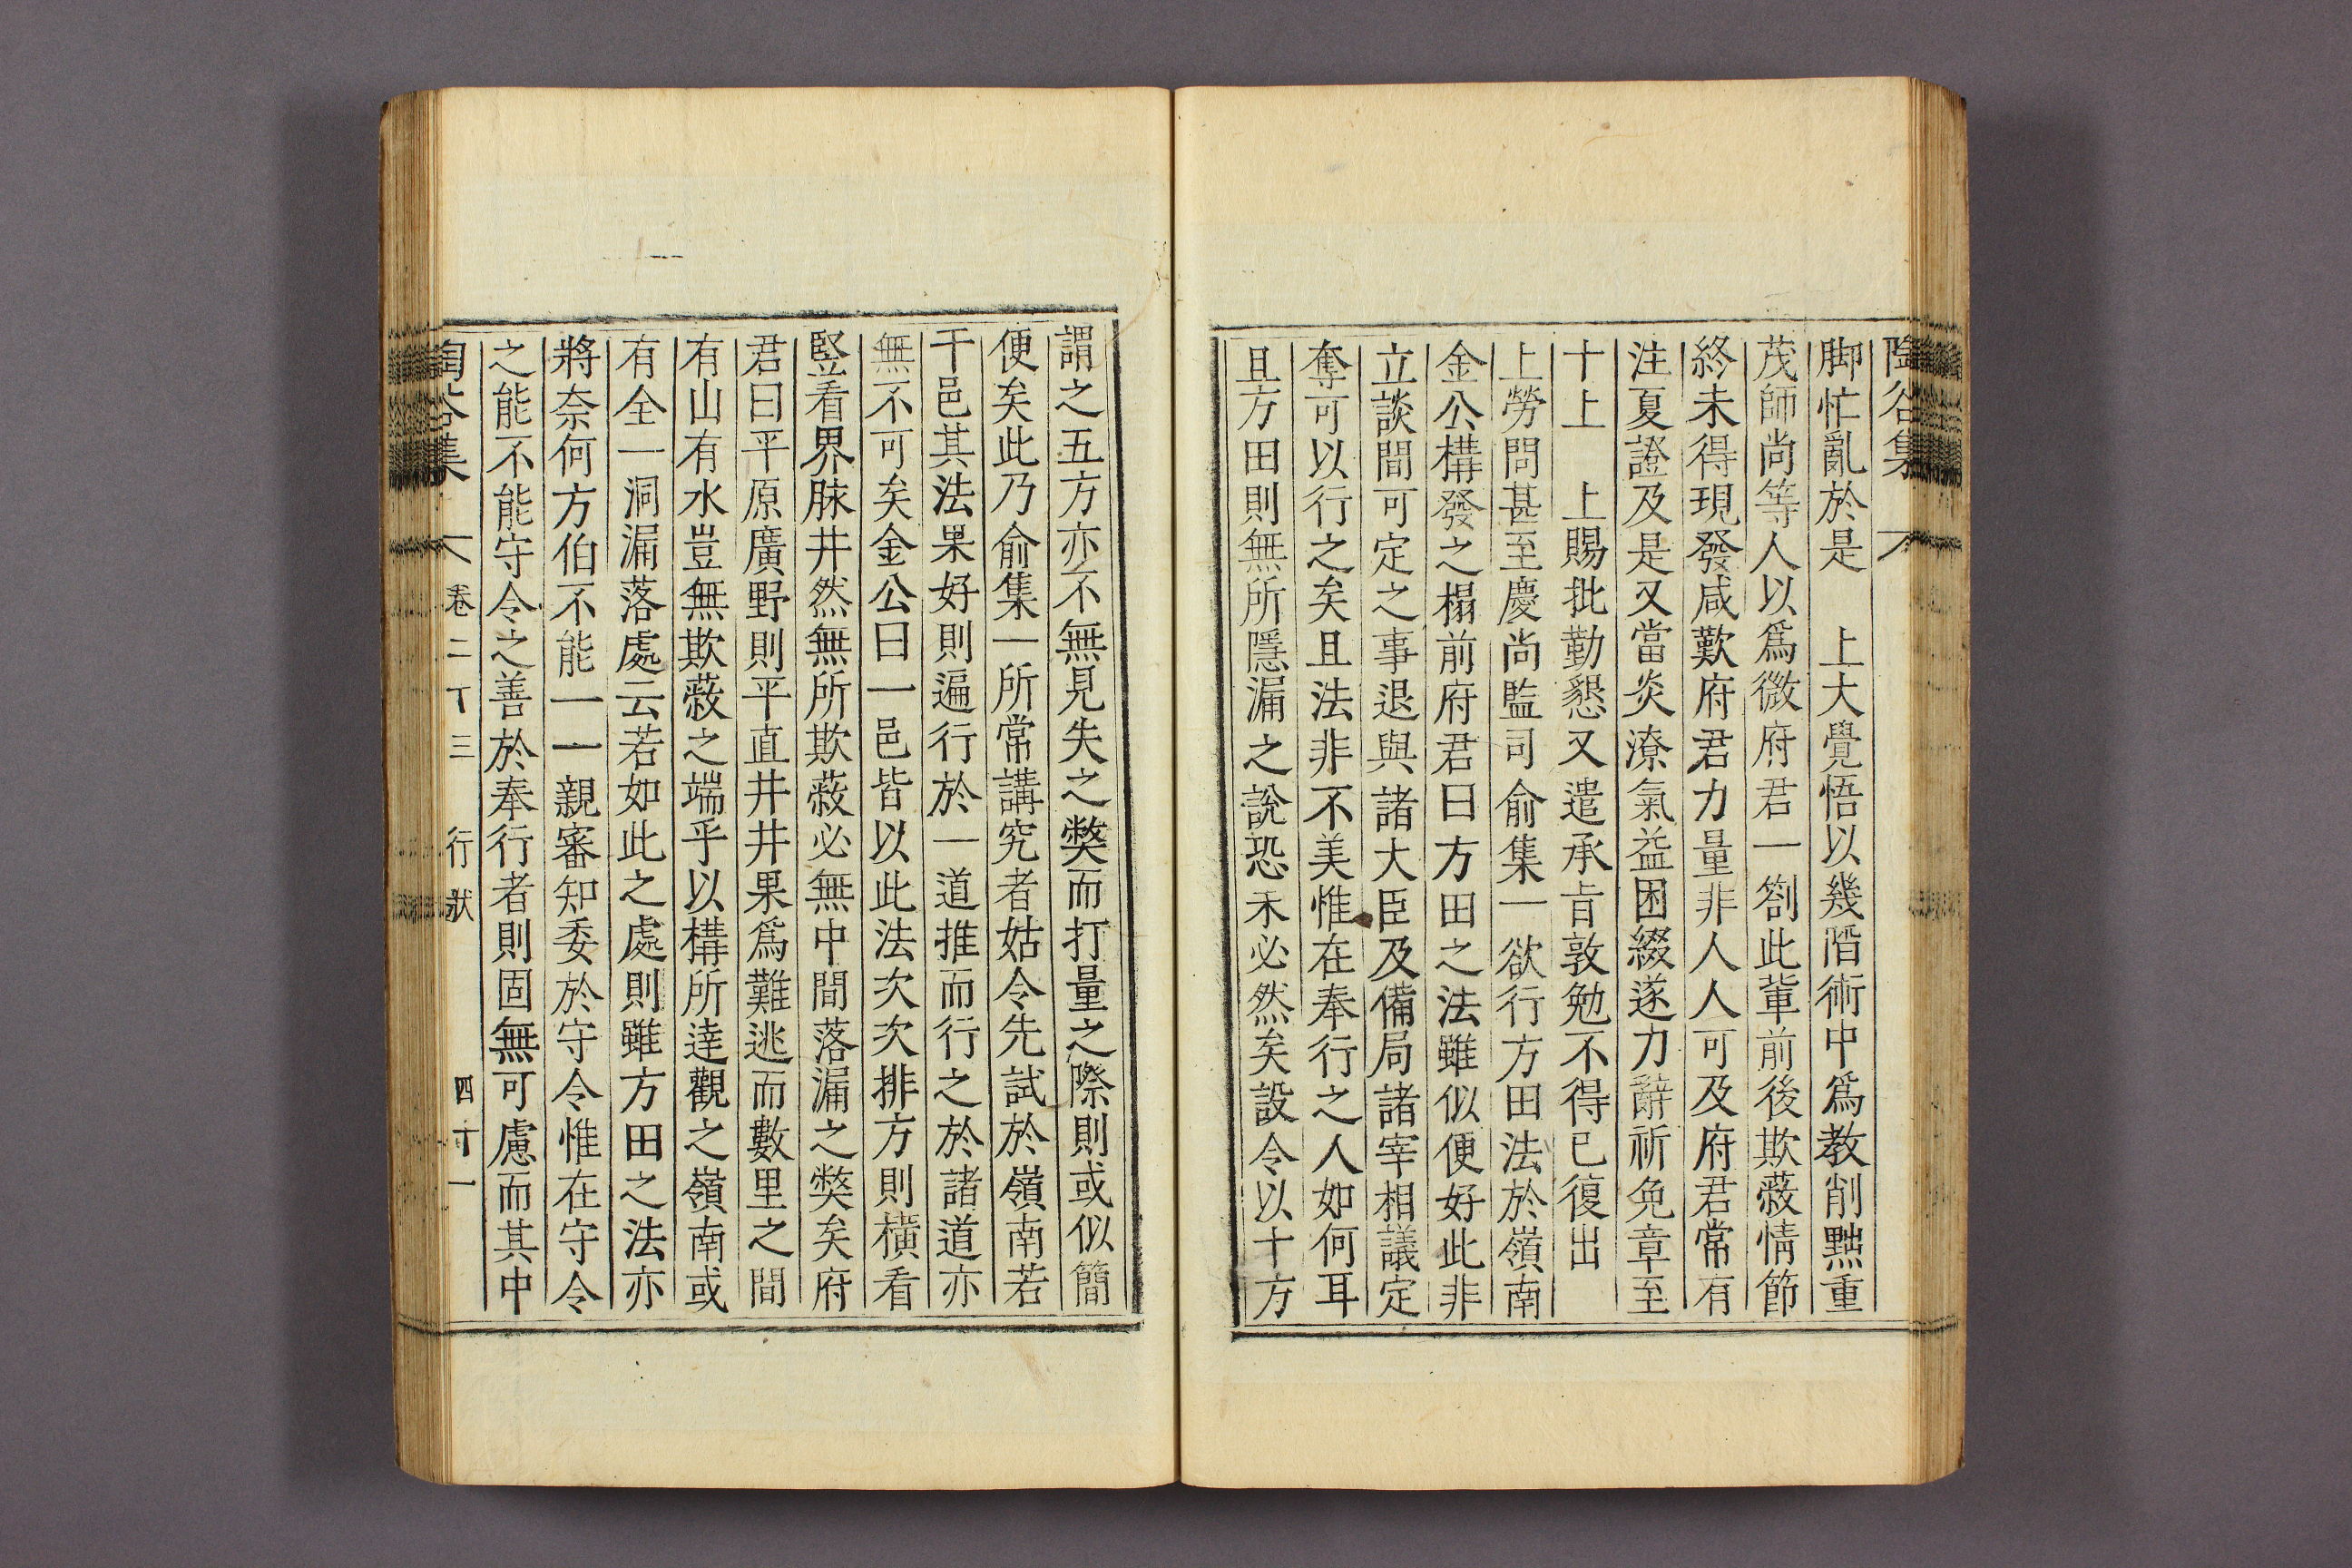 陶谷集
脚忙亂於是　上大覺悟以幾陷術中爲教削黜重
茂師尚等人以爲微府君一劄此輩前後欺蔽情節
終未得現發咸歎府君力量非人人可及府君常有
注夏證及是又當炎潦氣益困綴遂力辭祈免章至
十上　上賜批勤懇又遣承旨敦勉不得已復出
上勞問甚至慶尚監司俞集一欲行方田法於嶺南
金公構發之榻前府君曰方田之法雖似便好此非
立談間可定之事退與諸大臣及備局諸宰相議定
奪可以行之矣且法非不美惟在奉行之人如何耳
且方田則無所隱漏之說恐未必然矣設令以十方
謂之五方亦不無見失之獘而打量之際則或似簡
便矣此乃俞集一所常講究者姑令先試於嶺南若
干邑其法果好則遍行於一道推而行之於諸道亦
無不可矣金公曰一邑皆以此法次次排方則橫看
竪看界脉井然無所欺蔽必無中間落漏之獘矣府
君曰平原廣野則平直井井果爲難逃而數里之間
有山有水豈無欺蔽之端乎以構所逹觀之嶺南或
有全一洞漏落處云若如此之處則雖方田之法亦
將奈何方伯不能一一親審知委於守令惟在守令
之能不能守令之善於奉行者則固無可慮而其中
陶谷集　卷二十三　行狀　四十一